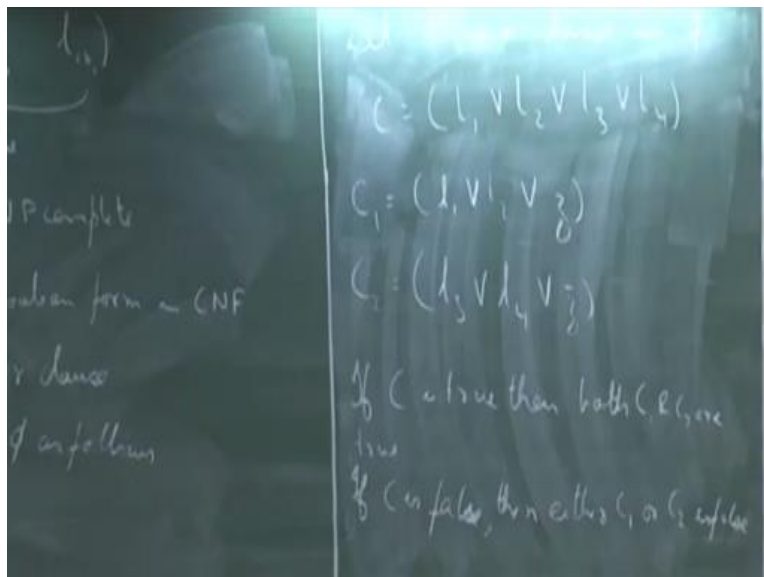 l
NP complete
form in CNF
clause
φ as follows
C = (l₁ V l₂ V l₃ V l₄)
C₁ = (l₁ V l₂ V z)
C₂ = (l₃ V l₄ V z̄)
If C is true then both C₁ & C₂ are
true
If C is false, then either C₁ or C₂ is false